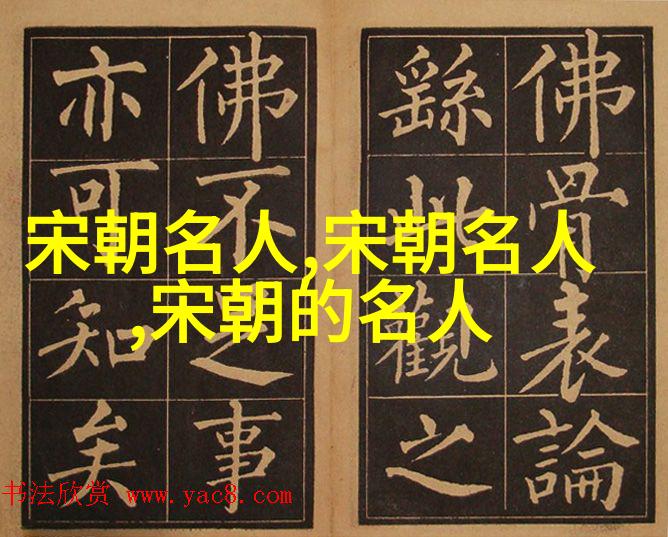 佛骨表論
繇此觀之
佛不足事
亦可知矣
宋朝名人,宋朝名人
,宋朝的名人
书法欣赏 www.yac8.com